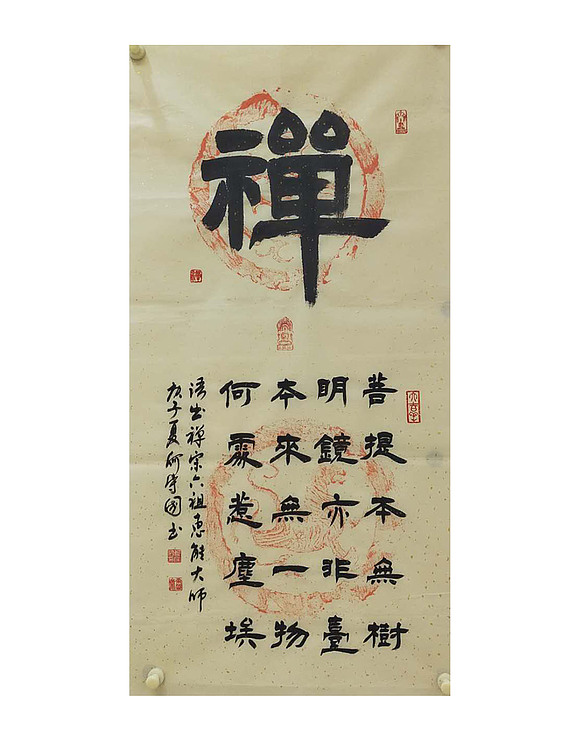 禪
菩提本無樹
明鏡亦非臺
本來無一物
何處惹塵埃
語出禪宗六祖惠能大師
庚子夏何守國書